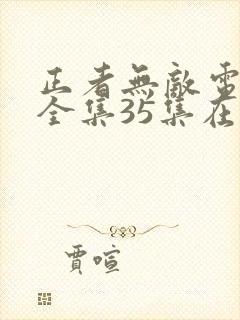 正者無敵電
全集35集在
賈喧